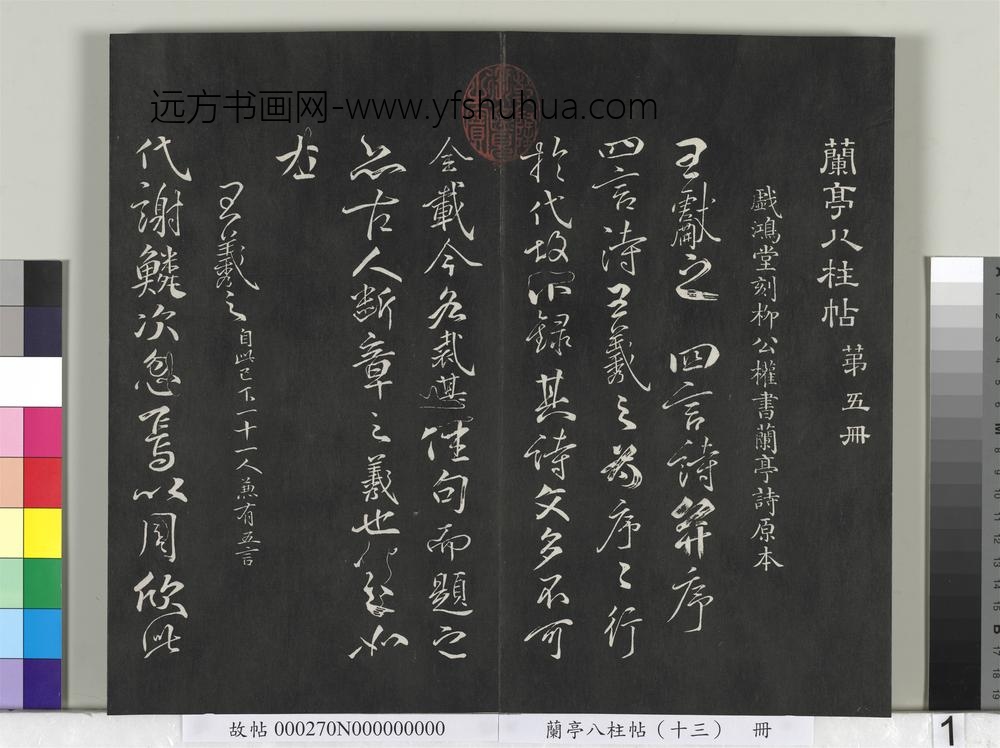 远方书画网-www.yfshuhua.com
蘭亭八柱帖 第五冊
戲鴻堂刻柳公權書蘭亭詩原本
王獻之 四言詩并序
四言詩王羲之為序序行
於代故不錄其詩文多不可
全載今各裁其佳句而題之
亦古人斷章之義也 如
左
王羲之 自此已下一十一人兼有五言
代謝鱗次忽焉以周欣此
故帖 000270N000000000
蘭亭八柱帖（十三） 冊
1